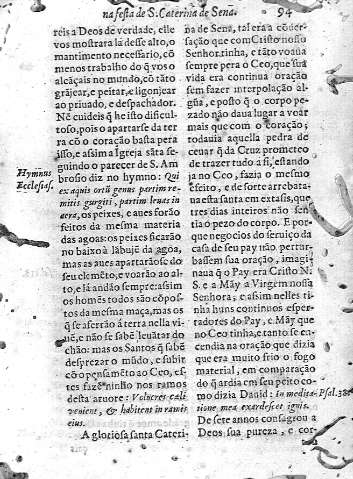 na festa de S. Caterina de Sena. 94
reis a Deos de verdade, elle
vos mostrara lá desse alto, o
mantimento necessario, cõ
menos trabalho do q̃ vos o
alcãçais no mundo, cõ tãto
grãjear, e peitar, e lisonjear
ao priuado, e despachador.
Nẽ cuideis q̃ he isto dificul-
toso, pois o apartarse da ter
ra cõ o coração basta pera
isso, e assim a Igreja sãta se-
guindo o parecer de S. Am
brosio diz no hymno: Qui
ex aquis ortũ genus partim re
mittis gurgiti, partim leuas in
aera, os peixes, e aues forão
feitos da mesma materia
das agoas: os peixes ficarão
no baixo à labujẽ da agoa,
mas as aues apartarãose do
seu elemẽto, e voarão ao al-
to, e lá andão sempre: assim
os homẽs todos são cõpos-
tos da mesma maça, mas os
q̃ se aferrão á terra nella vi-
uẽ, e não se sabẽ leuãtar do
chão: mas os Santos q̃ sabẽ
desprezar o mũdo, e subir
cõ o pensamẽto ao Ceo, es-
tes fazẽ ninho nos ramos
desta aruore: Volucres cæli
venient, & habitent in ramis
eius.
A gloriosa santa Cateri-
Hymnus
Ecclesiæ.
na de Sena, tal era a cõuer-
sação que com Cristo nosso
Senhor tinha, e tãto voaua
sempre pera o Ceo, que sua
vida era continua oração
sem fazer interpolação al-
gũa, e posto q̃ o corpo pe-
zado não daua lugar a voar
mais que com o coração;
todauia aquella pedra de
ceuar q̃ da Cruz prometeo
de trazer tudo a si, estando
ja no Ceo, fazia o mesmo
efeito, e de sorte arrebata-
ua esta santa em extasis, que
tres dias inteiros não sen-
tia o pezo do corpo. E por
que negocios do seruiço da
casa de seu pay não pertur-
bassem sua oração, imagi-
naua q̃ o Pay era Cristo N.
S. e a Mãy a Virgem nossa
Senhora; e assim nelles ti-
nha huns continuos esper-
tadores do Pay, e Mãy que
no Ceo tinha, e tanto se en-
cendia na oração que dizia
que era muito frio o fogo
material, em comparação
do q̃ ardia em seu peito co-
mo dizia Dauid: in medita-
tione mea exardescet ignis.
De sete annos consagrou a
Deos sua pureza, e cor-
Psal. 38.